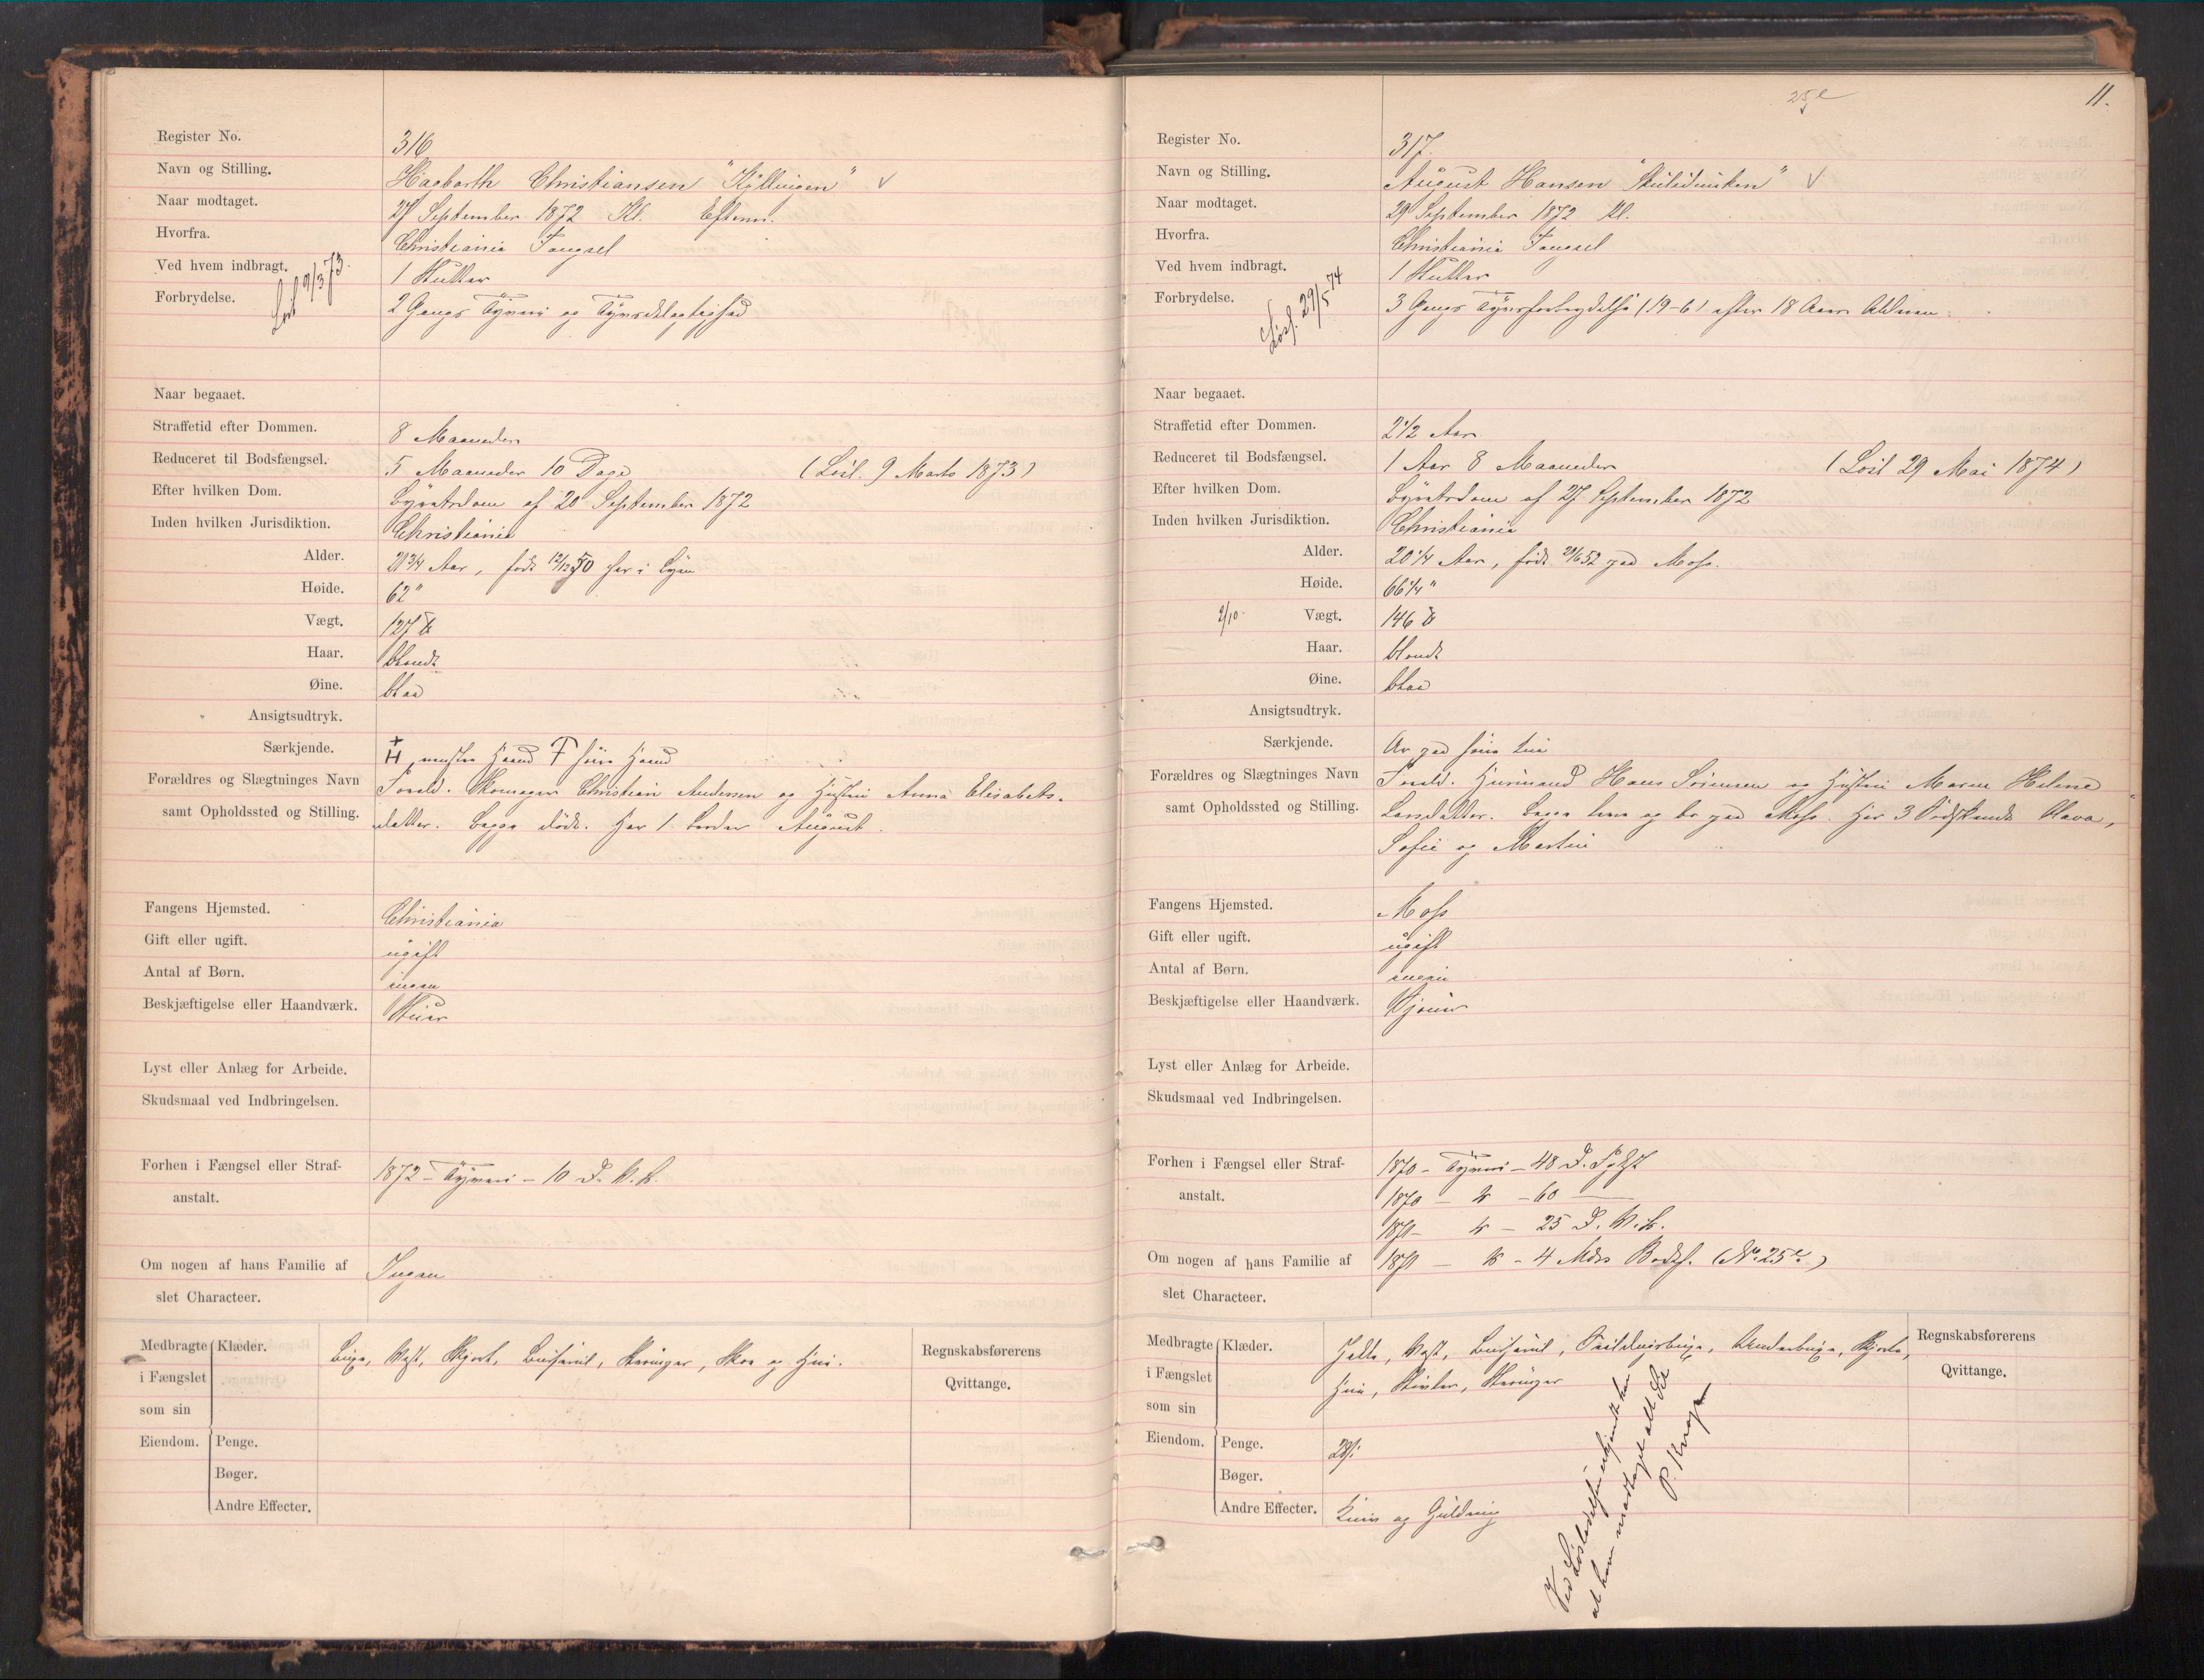 Register No. 316
Navn og Stilling. Hagbarth Christiansen "Kyllingen" √
Naar modtaget. 27 September 1872 Kl. Efterm.
Hvorfra. Christiania Fængsel
Ved hvem indbragt. 1 Slutter
Forbrydelse. 2 Gangs Tyveri og Tyvsdelagtighed
Løsl 9/3 73.
Naar begaaet.
Straffetid efter Dommen. 8 Maaneder
Reduceret til Bodsfængsel. 5 Maaneder 10 Dage (Løsl. 9 Marts 1873)
Efter hvilken Dom. Byretsdom af 20 September 1872
Inden hvilken Jurisdiktion. Christiania
Alder. 21 3/4 Aar, født 12/12 50 her i Byen
Høide. 62"
Vægt. 127 ℔
Haar. blondt
Øine. blaa
Ansigtsudtryk.
Særkjende. H venstre Haand høire Haand
Forældres og Slægtninges Navn Foreld. Skomager Christian Andersen og Hustru Anna Elisabeths-
samt Opholdssted og Stilling. datter. Begge døde. Har 1 Broder August.
Fangens Hjemsted. Christiania
Gift eller ugift. ugift
Antal af Børn. ingen
Beskjæftigelse eller Haandværk.
Lyst eller Anlæg for Arbeide.
Skudsmaal ved Indbringelsen.
Forhen i Fængsel eller Straf- 1872 – Tyveri – 10 D. V. B.
anstalt.
Om nogen af hans Familie af Ingen
slet Characteer.
Medbragte Klæder. Buxe, Vest, Skjort, Buseruil, Strømper, Skoe og Hue.
i Fængslet
som sin
Eiendom. Penge.
Bøger.
Andre Effecter.
Regnskabsførerens
Qvittange.
25 e
11.
Register No. 317.
Navn og Stilling. August Hansen √
Naar modtaget. 29 September 1872 Kl.
Hvorfra. Christiania Fængsel
Ved hvem indbragt. 1 Slutter
Forbrydelse. 3 Gangs Tyvsforbrydelse (19–6) efter 18 Aars Alderen
Løsl. 29/5 74
Naar begaaet.
Straffetid efter Dommen. 2 1/2 Aar
Reduceret til Bodsfængsel. 1 Aar 8 Maaneder (Løsl 29 Mai 1874)
Efter hvilken Dom. Byretsdom af 27 September 1872
Inden hvilken Jurisdiktion. Christiania
Alder. 20 1/4 Aar, født 21/6 52 paa Moss.
Høide. 66 1/4"
2/10 Vægt. 146 ℔
Haar. blondt
Øine. blaa
Ansigtsudtryk.
Særkjende. Ar paa høire
Forældres og Slægtninges Navn Foreld. Husmand Hans Sørensen og Hustru Maren Helene
samt Opholdssted og Stilling. Larsdatter. Begge leve og bo paa Moss. Har 3 Sødskende Olava,
Sofie og Martin
Fangens Hjemsted. Moss
Gift eller ugift. ugift
Antal af Børn. ingen
Beskjæftigelse eller Haandværk. Sjouer
Lyst eller Anlæg for Arbeide.
Skudsmaal ved Indbringelsen.
Forhen i Fængsel eller Straf- 1870 – Tyveri – 48 D. Fgsl
anstalt. 1870 – " – 60 —
1871 – " – 25 D. V. B.
Om nogen af hans Familie af 1871 – " – 4 Mdrs Bodsf. (No 25 e)
slet Characteer.
Medbragte Klæder. Jakke, Vest, Buseruil, Underbuxe, Skjorte,
i Fængslet Hue, Støvler, Strømper
som sin
Eiendom. Penge. 28 s.
Bøger.
Andre Effecter. Kniv og Guldring
Regnskabsførerens
Qvittange.
Ved Løsladelsen erkjendte han
at have modtaget alt Sit